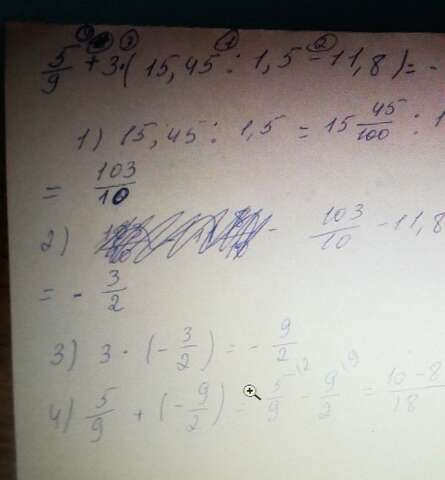 ④ ③ ① ②
5/9 + 3·(15,45 : 1,5 - 11,8) = -
1) 15,45 : 1,5 = 15 45/100 : 1
= 103/10
2) - 103/10 - 11,8
= - 3/2
3) 3 · (- 3/2) = - 9/2
4) 5/9 + (- 9/2) = 5/9 - 9/2 = 10-8/18